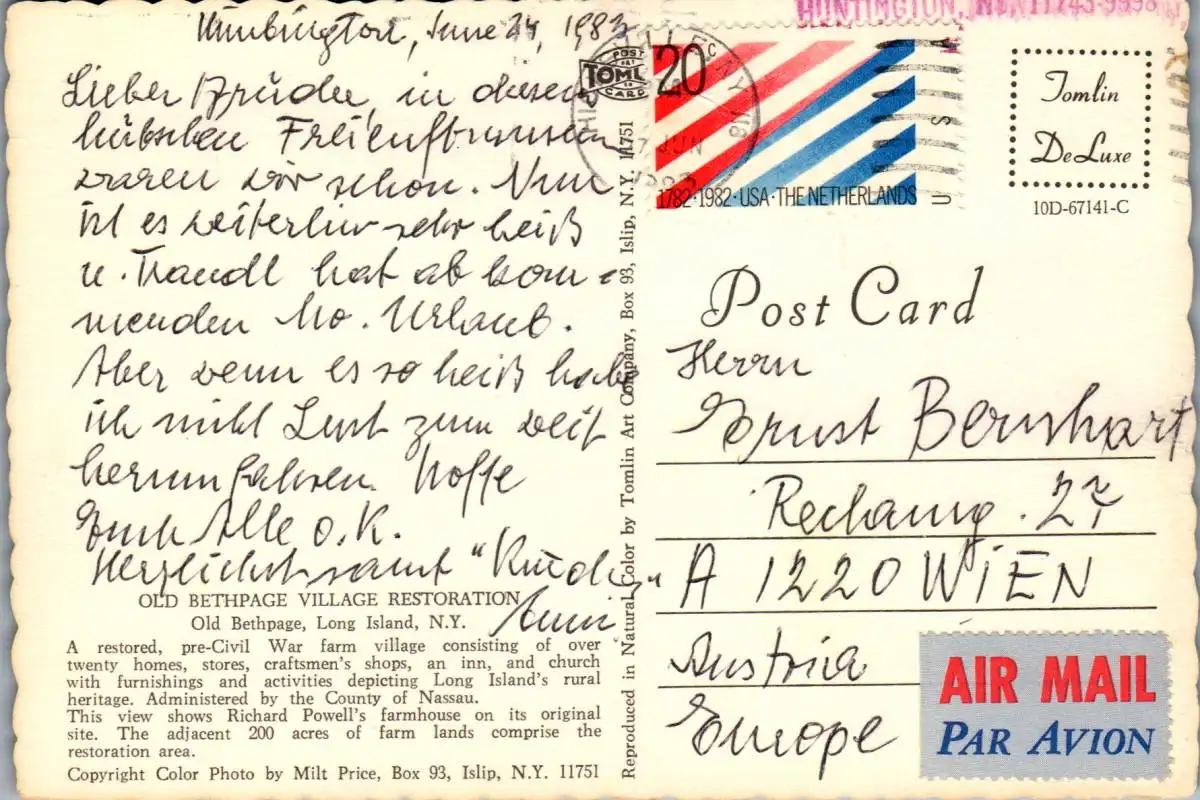 Huntington, June 24, 1983
Lieber Brüder, in diesem
hübschen Freiluftmuseum
waren wir schon. Nun
ist es weiterhin sehr heiß
u. Traudl hat ab kom-
menden Mo. Urlaub.
Aber wenn es so heiß habe
ich nicht Lust zum weit
herumfahren. Hoffe
Euch Alle o.K.
Herzlichst samt "Kinder"
Anni
OLD BETHPAGE VILLAGE RESTORATION
Old Bethpage, Long Island, N.Y.
A restored, pre-Civil War farm village consisting of over
twenty homes, stores, craftsmen's shops, an inn, and church
with furnishings and activities depicting Long Island's rural
heritage. Administered by the County of Nassau.
This view shows Richard Powell's farmhouse on its original
site. The adjacent 200 acres of farm lands comprise the
restoration area.
Copyright Color Photo by Milt Price, Box 93, Islip, N.Y. 11751
Reproduced in Natural Color by Tomlin Art Company, Box 93, Islip, N.Y. 11751
POST
TOML
CARD
HUNTINGTON, N.Y.
20c
1782·1982·USA·THE NETHERLANDS
JUN
1983
Tomlin
De Luxe
10D-67141-C
Post Card
Herrn
Ernst Bernhart
27
A 1220 WIEN
Austria
Europe
AIR MAIL
PAR AVION